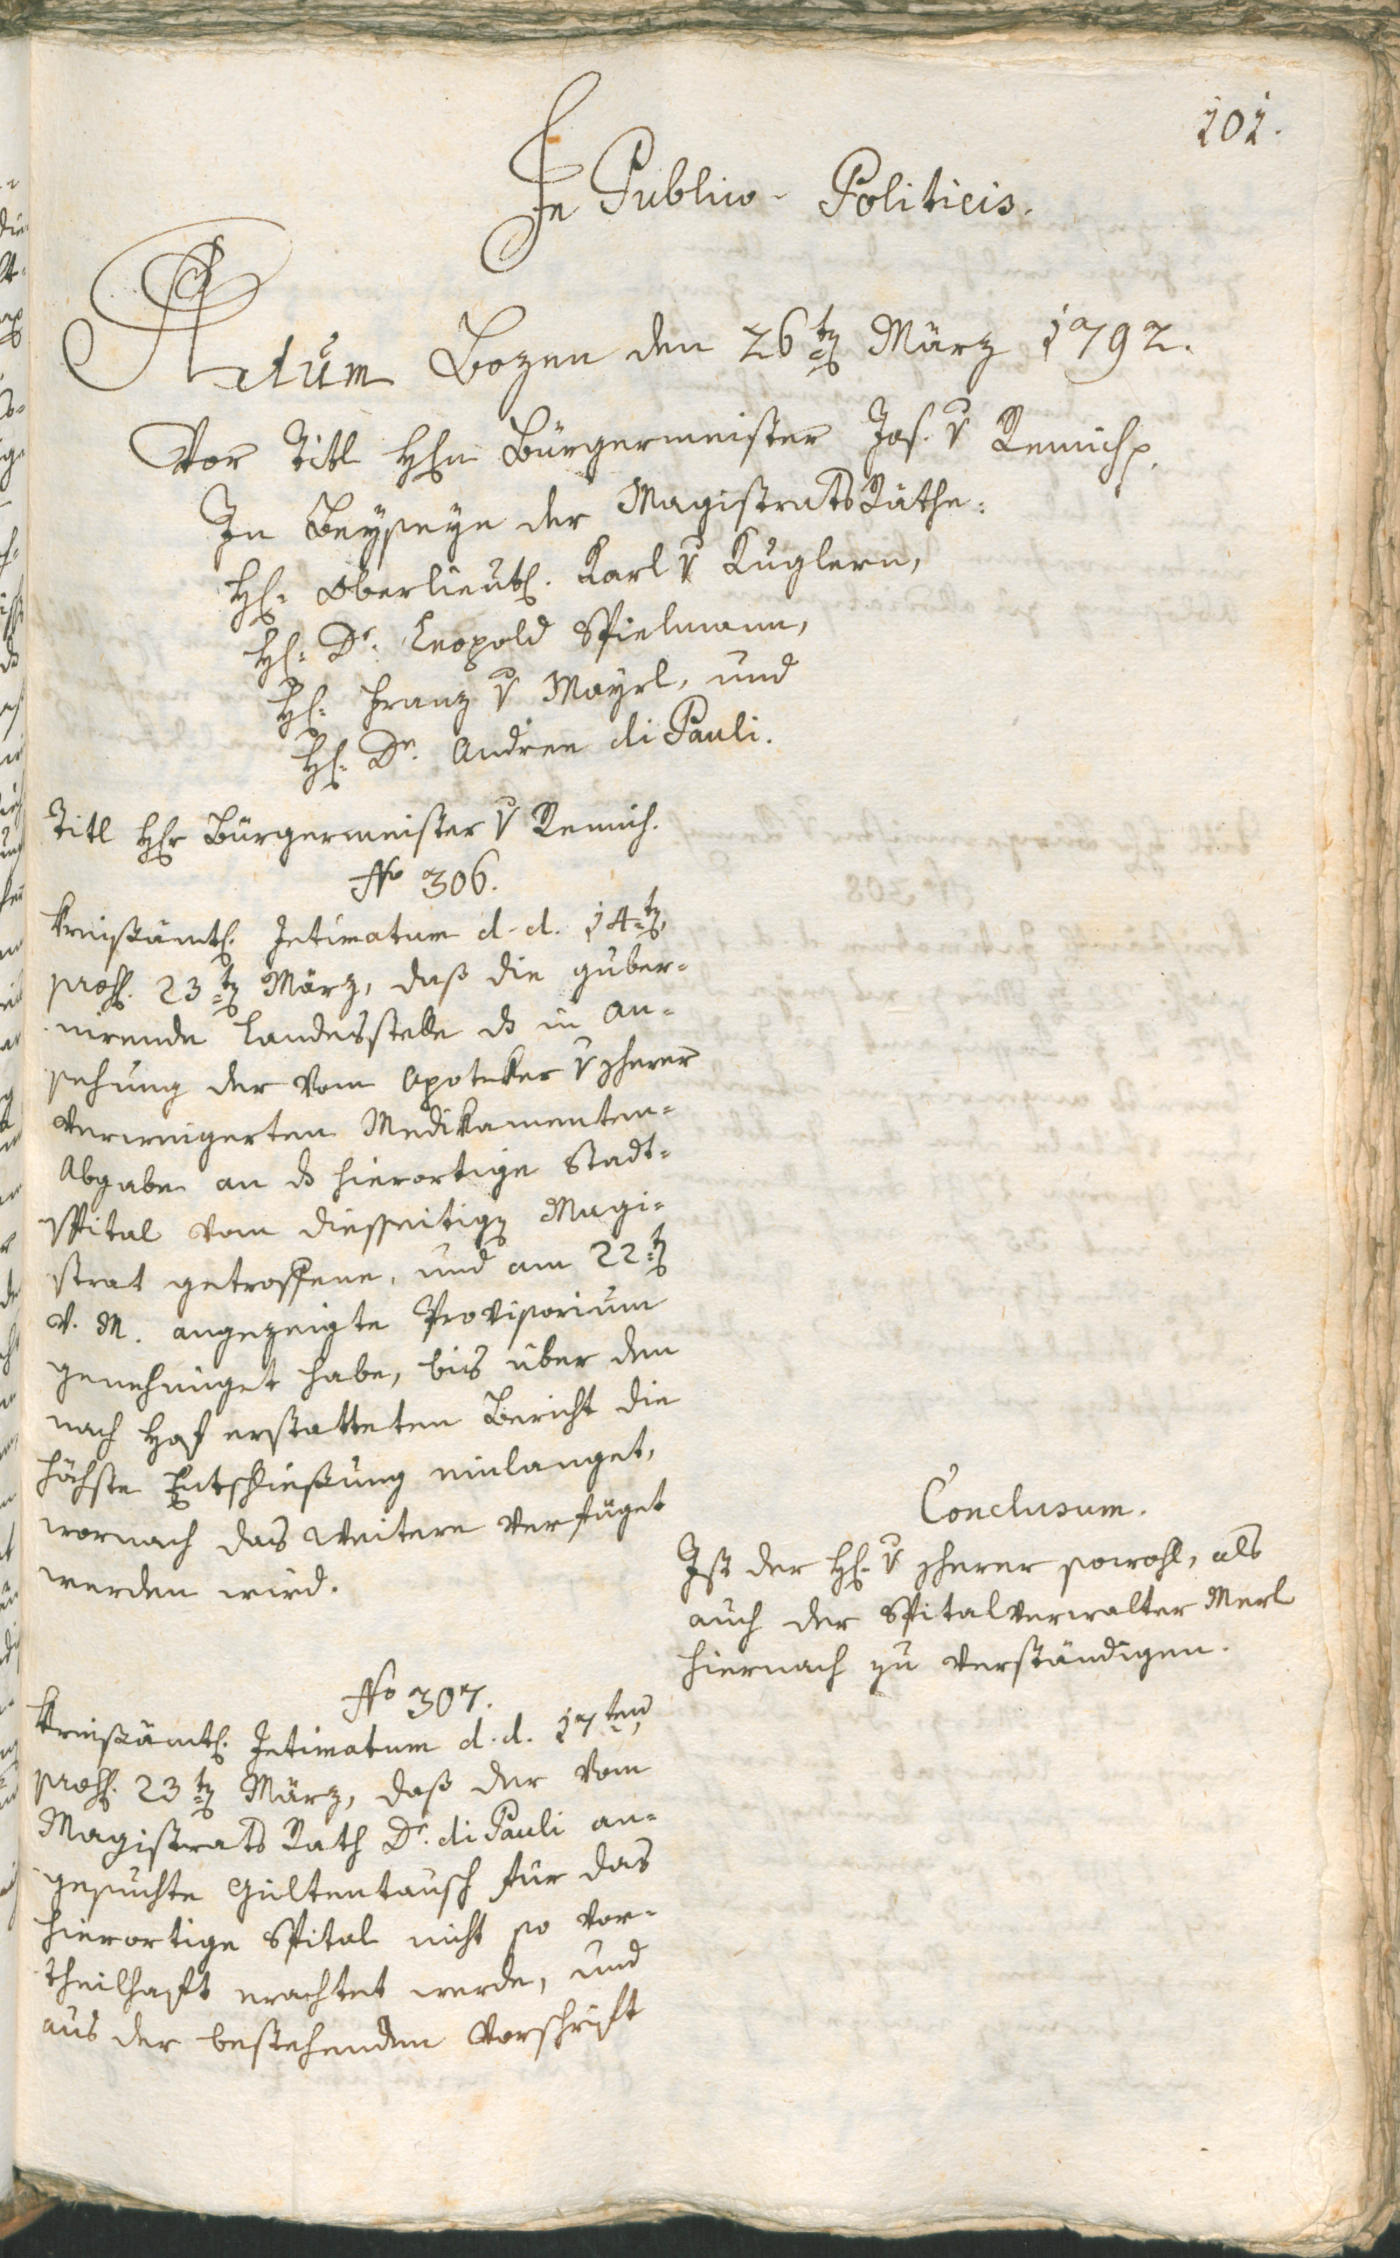 101.
In Publico-Politicis.
Actum Bozen den 26ten März 1792.
Vor Titl Hhn Bürgermeister Jos. v Remich p.
In Beyseyn der Magistrats Räthe:
Hh: Oberlieut: Karl v Kuglern,
Hh: Dr. Leopold Spielmann,
Hh: Franz v Mayrl, und
Hh: Dr. Andree di Pauli.
Titl Hhr Bürgermeister v Remich.
No 306.
Kreißämtl: Intimatum d. d. 14ten,
præs. 23ten März, daß die guber-
nirende Landesstelle ds in An-
sehung der vom Apoteker v zherer
verweigerten Medikamenten-
Abgabe an ds hierortige Stadt-
spital vom dießseitigen Magi-
strat getroffene, und am 22ten
v. M. angezeigte Provisorium
genehmiget habe, bis über den
nach Hof erstatteten Bericht die
höchste Entschließung einlanget,
wornach das Weitere verfüget
werden wird.
Conclusum.
Ist der Hh: v zherer sowohl, als
auch der Spitalverwalter Merl
hiernach zu verständigen.
No 307.
Kreißämtl: Intimatum d. d. 17ten,
præs. 23ten März, daß der vom
Magistrats Rath Dr. di Pauli an-
gesuchte Gültentausch für das
hierortige Spital nicht so vor-
theilhaft erachtet werde, und
aus der bestehenden Vorschrift